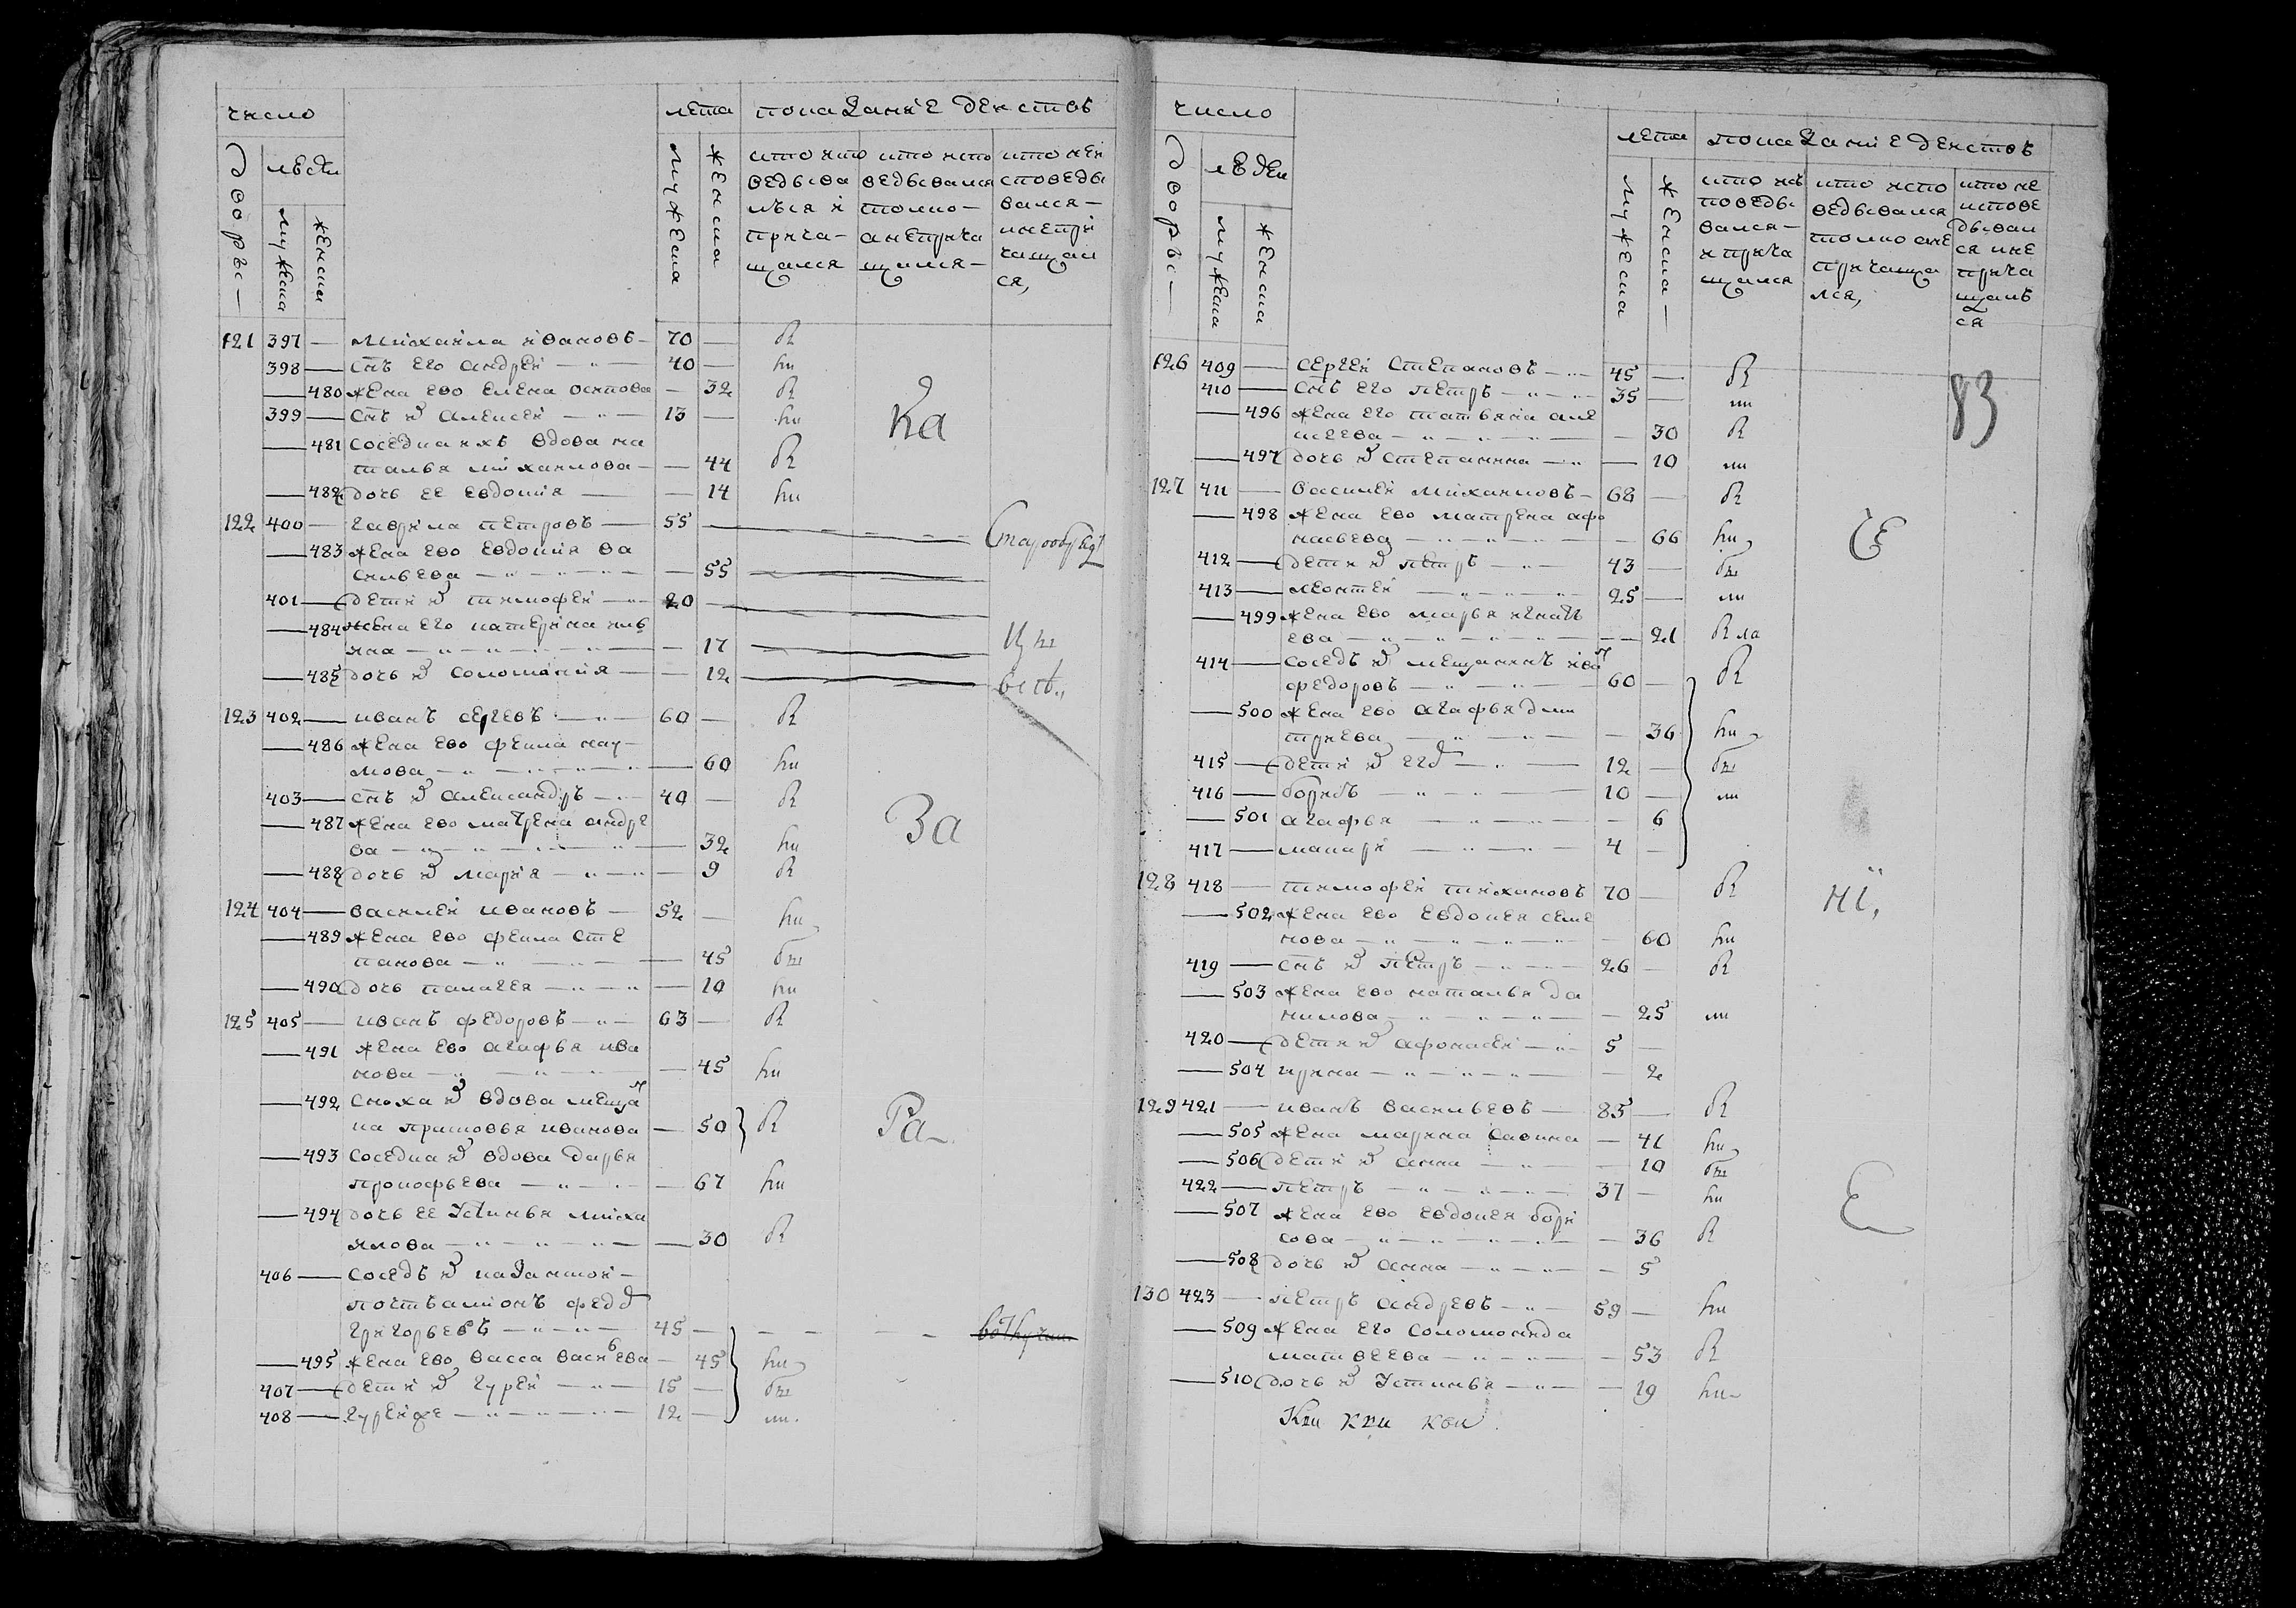 число
лета
показание действъ
дворы
людей
мужеска
женска
мужеска
женска
кто испо
ведыва
лься и
прича-
щался
кто испо
ведывался
толко-
а неприча
щился-
кто неи
споведы
вался-
и непри
чащал
ся,
121 397 — Михаила ивановъ — 70 —
398 — снъ его андреи — 40 —
— 480 жена ево елена осипова — 32
399 — снъ ѿ алексеи — 13 —
Ка
— 481 соседка ихъ вдова на
талья михаилова — — 44
— 482 дочь ее евдокия — — 14
122 400 — гаврила петровъ — 55
Старообряд
— 483 жена ево евдокия ва
сильева — 55
401 — дети ѿ тимофеи — 20
— 484 жена его катерина
— 17
— 485 дочь ѿ соломания — — 12
123 402 — иванъ сергевъ — 60 —
— 486 жена ево фекла нау-
мова — 60
403 — снъ ѿ александръ — 40 —
— 487 жена ево матрена андре
ва — 32
За
— 488 дочь ѿ мария — 9
124 404 — василеи ивановъ — 52 —
— 489 жена ево фекла сте
панова — 45
— 490 дочь палагея — 10
125 405 — иванъ федоровъ — 63 —
— 491 жена ево агафья ива
нова — 45
— 492 сноха ѿ вдова мещан
ка прасковья иванова — 50
Ра
— 493 соседка ѿ вдова дарья
прокофьева — 67
— 494 дочь ее устинья миха
илова — 30
406 — соседъ ѿ казанской —
почтъалионъ федо
григорьевъ — 45 —
— 495 жена ево васса васильева — 45
407 — дети ѿ гуреи — 15 —
408 — гуреи же — 12 —
число
лета
показание действъ
дворы
людеи
мужеска
женска
мужеска
женска
кто ис
поведы
вался-
и прича
щался
кто испо
ведывался
толко а не
причаща
лся,
кто не
испове
дывал
ся и не
прича
щалъ
ся
83
126 409 — сергеи степановъ — 45 —
410 — снъ его петръ — 35 —
— 496 жена его татьяна але
ксеева — 30
— 497 дочь ѿ степанина — 10
127 411 — василеи михаиловъ — 68 —
— 498 жена ево матрена афо
насьева — 66
Се
412 — дети ѿ петръ — 43 —
413 — леонтеи — 25 —
— 499 жена ево марья игнать
ева — 21
414 — соседъ ѿ мещанинъ иван
федоровъ — 60 —
— 500 жена ево агафья дми
триева — 36
415 — дети ѿ его — 12 —
416 — борисъ — 10 —
— 501 агафья — 6
417 — макари — 4 —
128 418 — тимофеи тихановъ 70 —
ні,
— 502 жена ево евдокея семе
нова — 60
419 — снъ ѿ петръ — 26 —
— 503 жена ево наталья да
нилова — 25
420 — дети ѿ афонасеи — 5 —
— 504 ирина — 2
129 421 — иванъ васильевъ — 85 —
— 505 жена марина савина — 41
— 506 дети ѿ анна — 10
422 — петръ — 37 —
— 507 жена ево евдокея бори
сова — 36
Е
— 508 дочь ѿ анна — 5
130 423 — петръ андревъ — 59 —
— 509 жена его соломонида
матвеева — 53
— 510 дочь ѿ устинья — 19